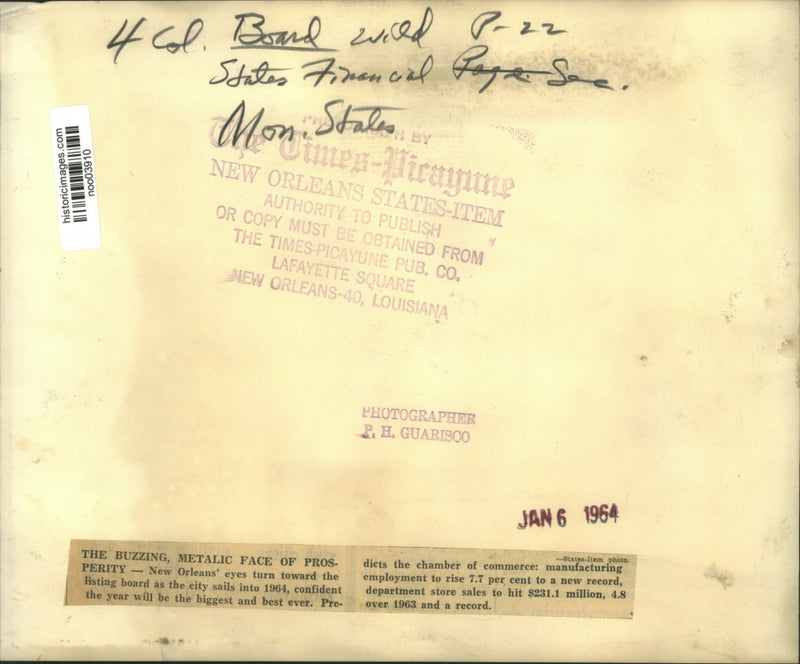 4 Col. Board wild P-22
States Financial Page Sec.
Mon. States
historicimages.com
noo03910
PHOTOGRAPH BY
The Times-Picayune
NEW ORLEANS STATES-ITEM
AUTHORITY TO PUBLISH
OR COPY MUST BE OBTAINED FROM
THE TIMES-PICAYUNE PUB. CO.
LAFAYETTE SQUARE
NEW ORLEANS-40, LOUISIANA
PHOTOGRAPHER
P. H. GUARISCO
JAN 6 1964
THE BUZZING, METALIC FACE OF PROS-
PERITY — New Orleans' eyes turn toward the
listing board as the city sails into 1964, confident
the year will be the biggest and best ever. Pre-
—States-Item photo.
dicts the chamber of commerce: manufacturing
employment to rise 7.7 per cent to a new record,
department store sales to hit $231.1 million, 4.8
over 1963 and a record.